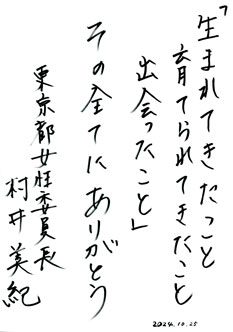 「生まれてきたこと
育てられてきたこと
出会ったこと」
その全てにありがとう
東京都女性委員長
村井美紀
2024.10.25